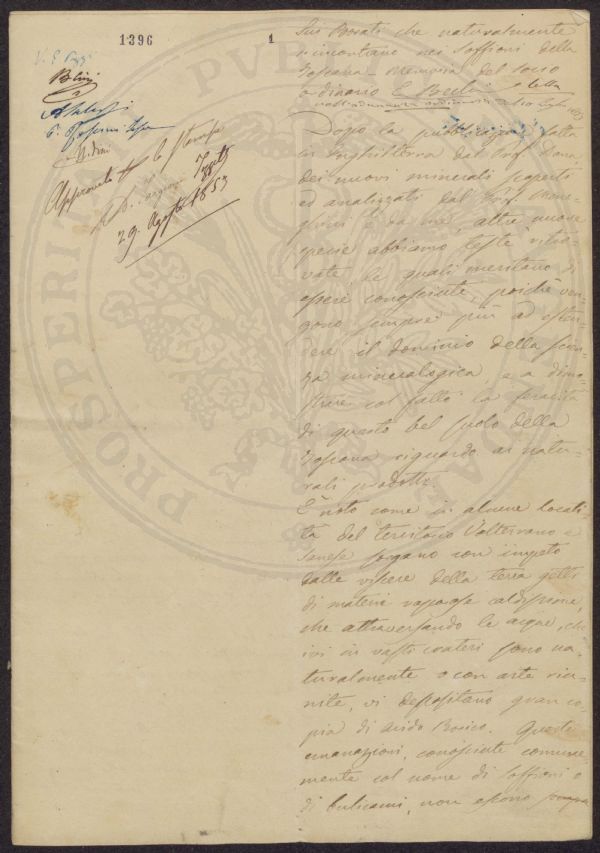 1396
1
Approvata per la Stampa
29. Agosto 1853
Sui Borati che naturalmente
rincontrano nei Soffioni della
Toscana - Memoria del socio
ordinario E. Bechi
Dopo la pubblicazione fatta
in Inghilterra dal Prof. Dana,
dei nuovi minerali scoperti
ed analizzati dal Prof. Mene-
ghini e da me, altre nuove
specie abbiamo testè ritro-
vate, le quali meritano di
essere conosciute, poichè ven-
gono sempre più ad esten-
dere il dominio della scien-
za mineralogica, e a dimo-
strare col fatto la feracità
di questo bel suolo della
Toscana riguardo ai natu-
rali prodotti.
È noto come in alcune locali-
tà del territorio Volterrano e
Sanese sorgano con impeto
dalle viscere della terra getti
di materie vaporose caldissime,
che attraversando le acque, che
ivi in vasti crateri sono na-
turalmente o con arte riu-
nite, vi depositano gran co-
pia di Acido Borico. Queste
emanazioni, conosciute comune-
mente col nome di Soffioni o
di bulicami, non escono sempre
PROSPERITATI PVBLICAE